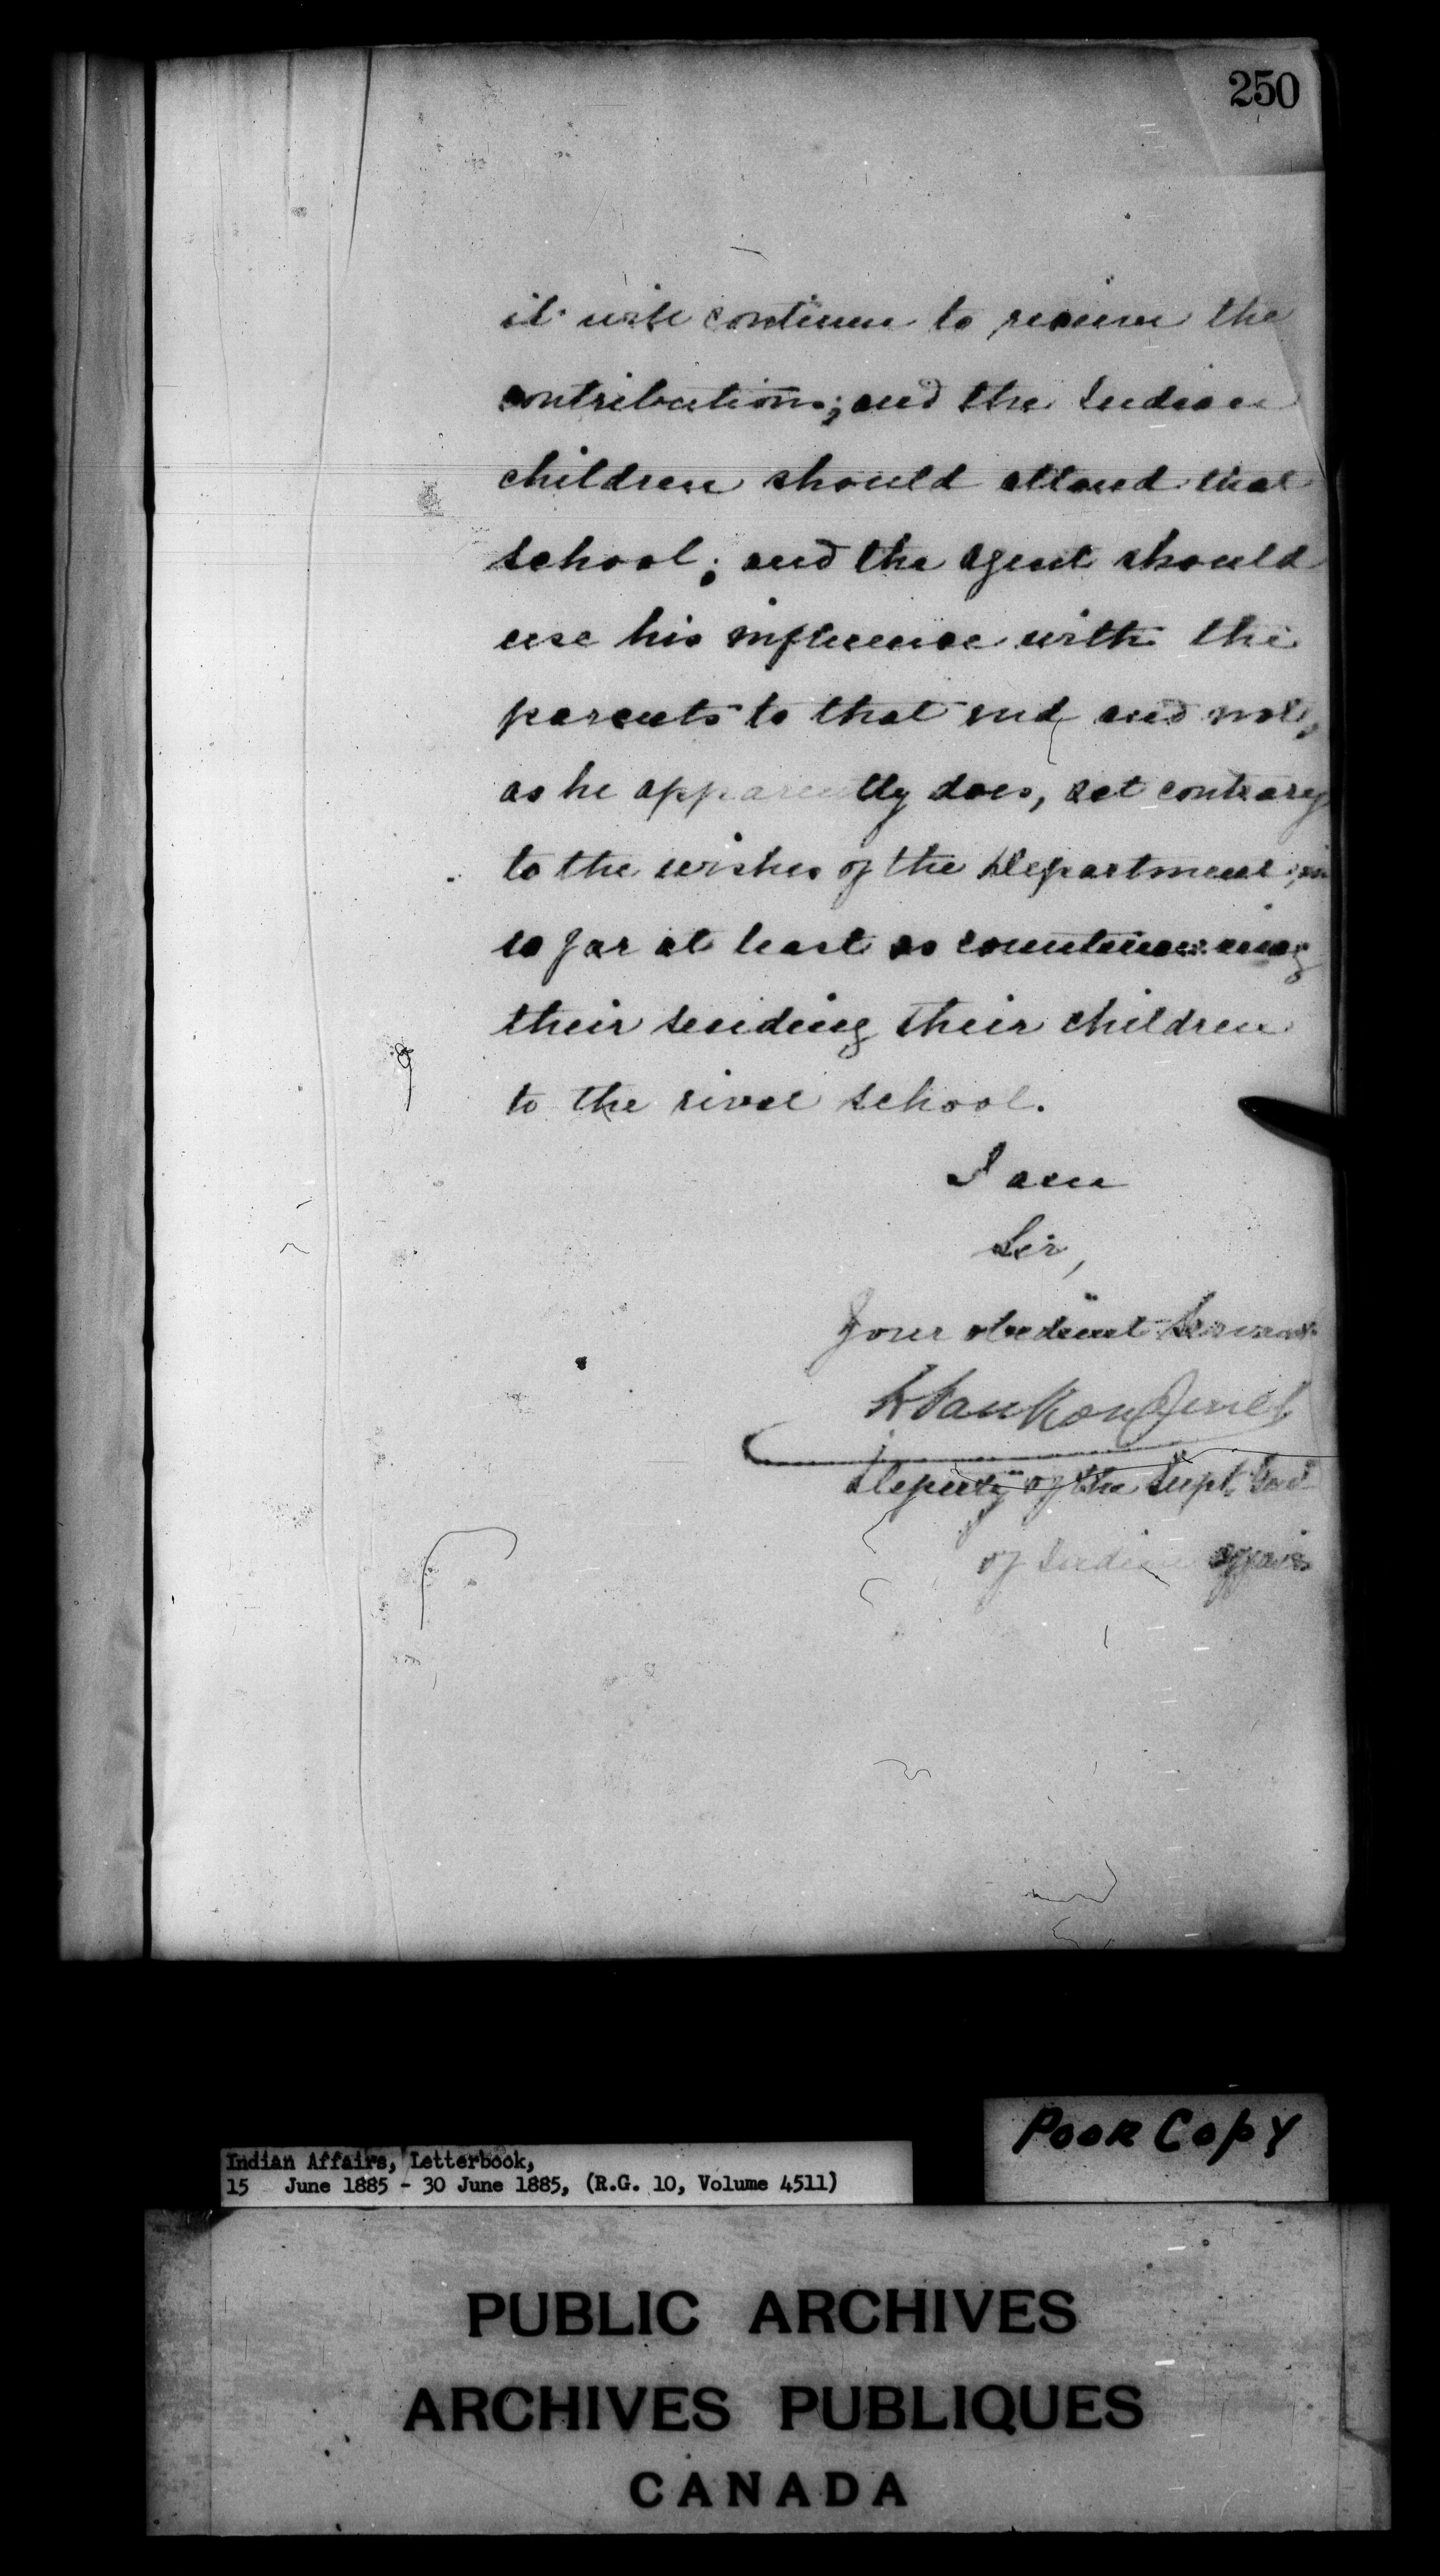 250
it will continue to receive the
contribution; and the Indian
children should attend that
school; and the agent should
use his influence with the
parents to that end and not,
as he apparently does, act contrary
to the wishes of the Department in
so far at least as countenancing
their sending their children
to the rival school.
I am
Sir,
Your obedient Servant
L VanKoughnet
Deputy of the Supt. Genl
of Indian Affairs
Poor Copy
Indian Affairs, Letterbook,
15 June 1885 - 30 June 1885, (R.G. 10, Volume 4511)
PUBLIC ARCHIVES
ARCHIVES PUBLIQUES
CANADA